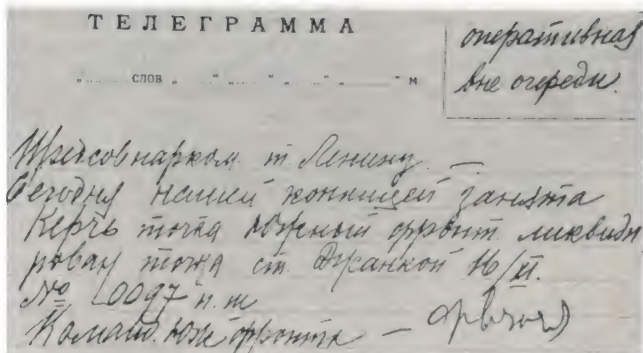 ТЕЛЕГРАММА
"........ слов „ ....."„......"„......."„........" м
оперативная
вне очереди.
Предсовнарком т. Ленину —
Сегодня нашей конницей занята
Керчь точка южный фронт ликвиди
рован точка ст. Джанкой 16/XI.
№ 0097 п.ш
Команд. юж фронта — Фрунзе